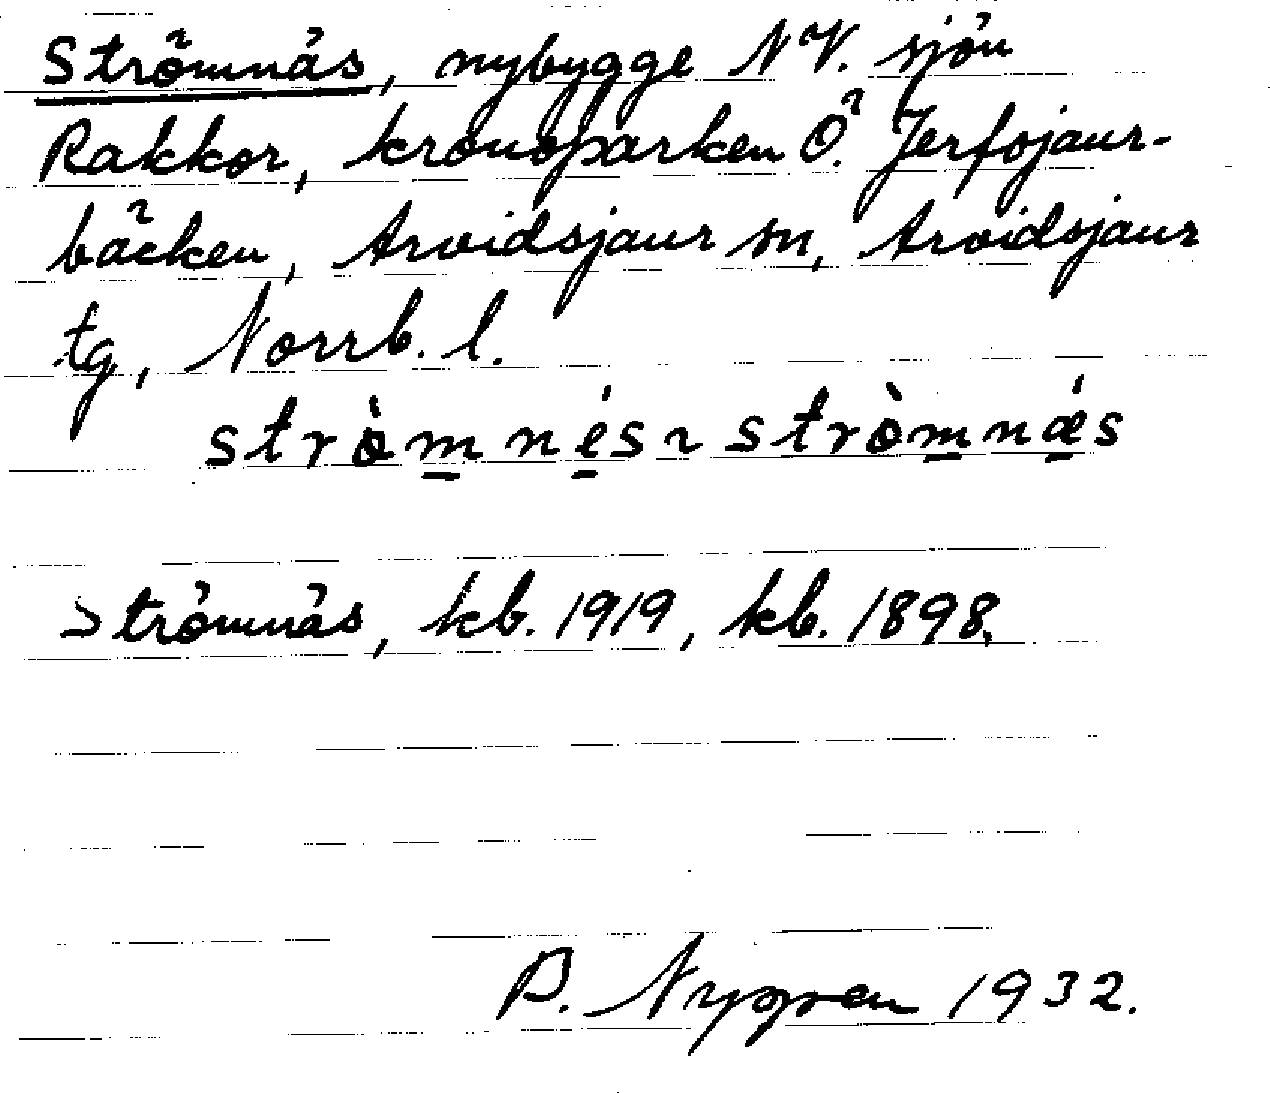 Strömnäs, nybygge NV. sjön
Rakkor, kronoparken Ö. Jerfojaur-
bäcken, Arvidsjaur sn, Arvidsjaur
tg, Norrb. l.
stròm̲né̲s ~ stròm̲nǽ̲s
Strömnäs, kb. 1919, kb. 1898.
P. Nygren 1932.